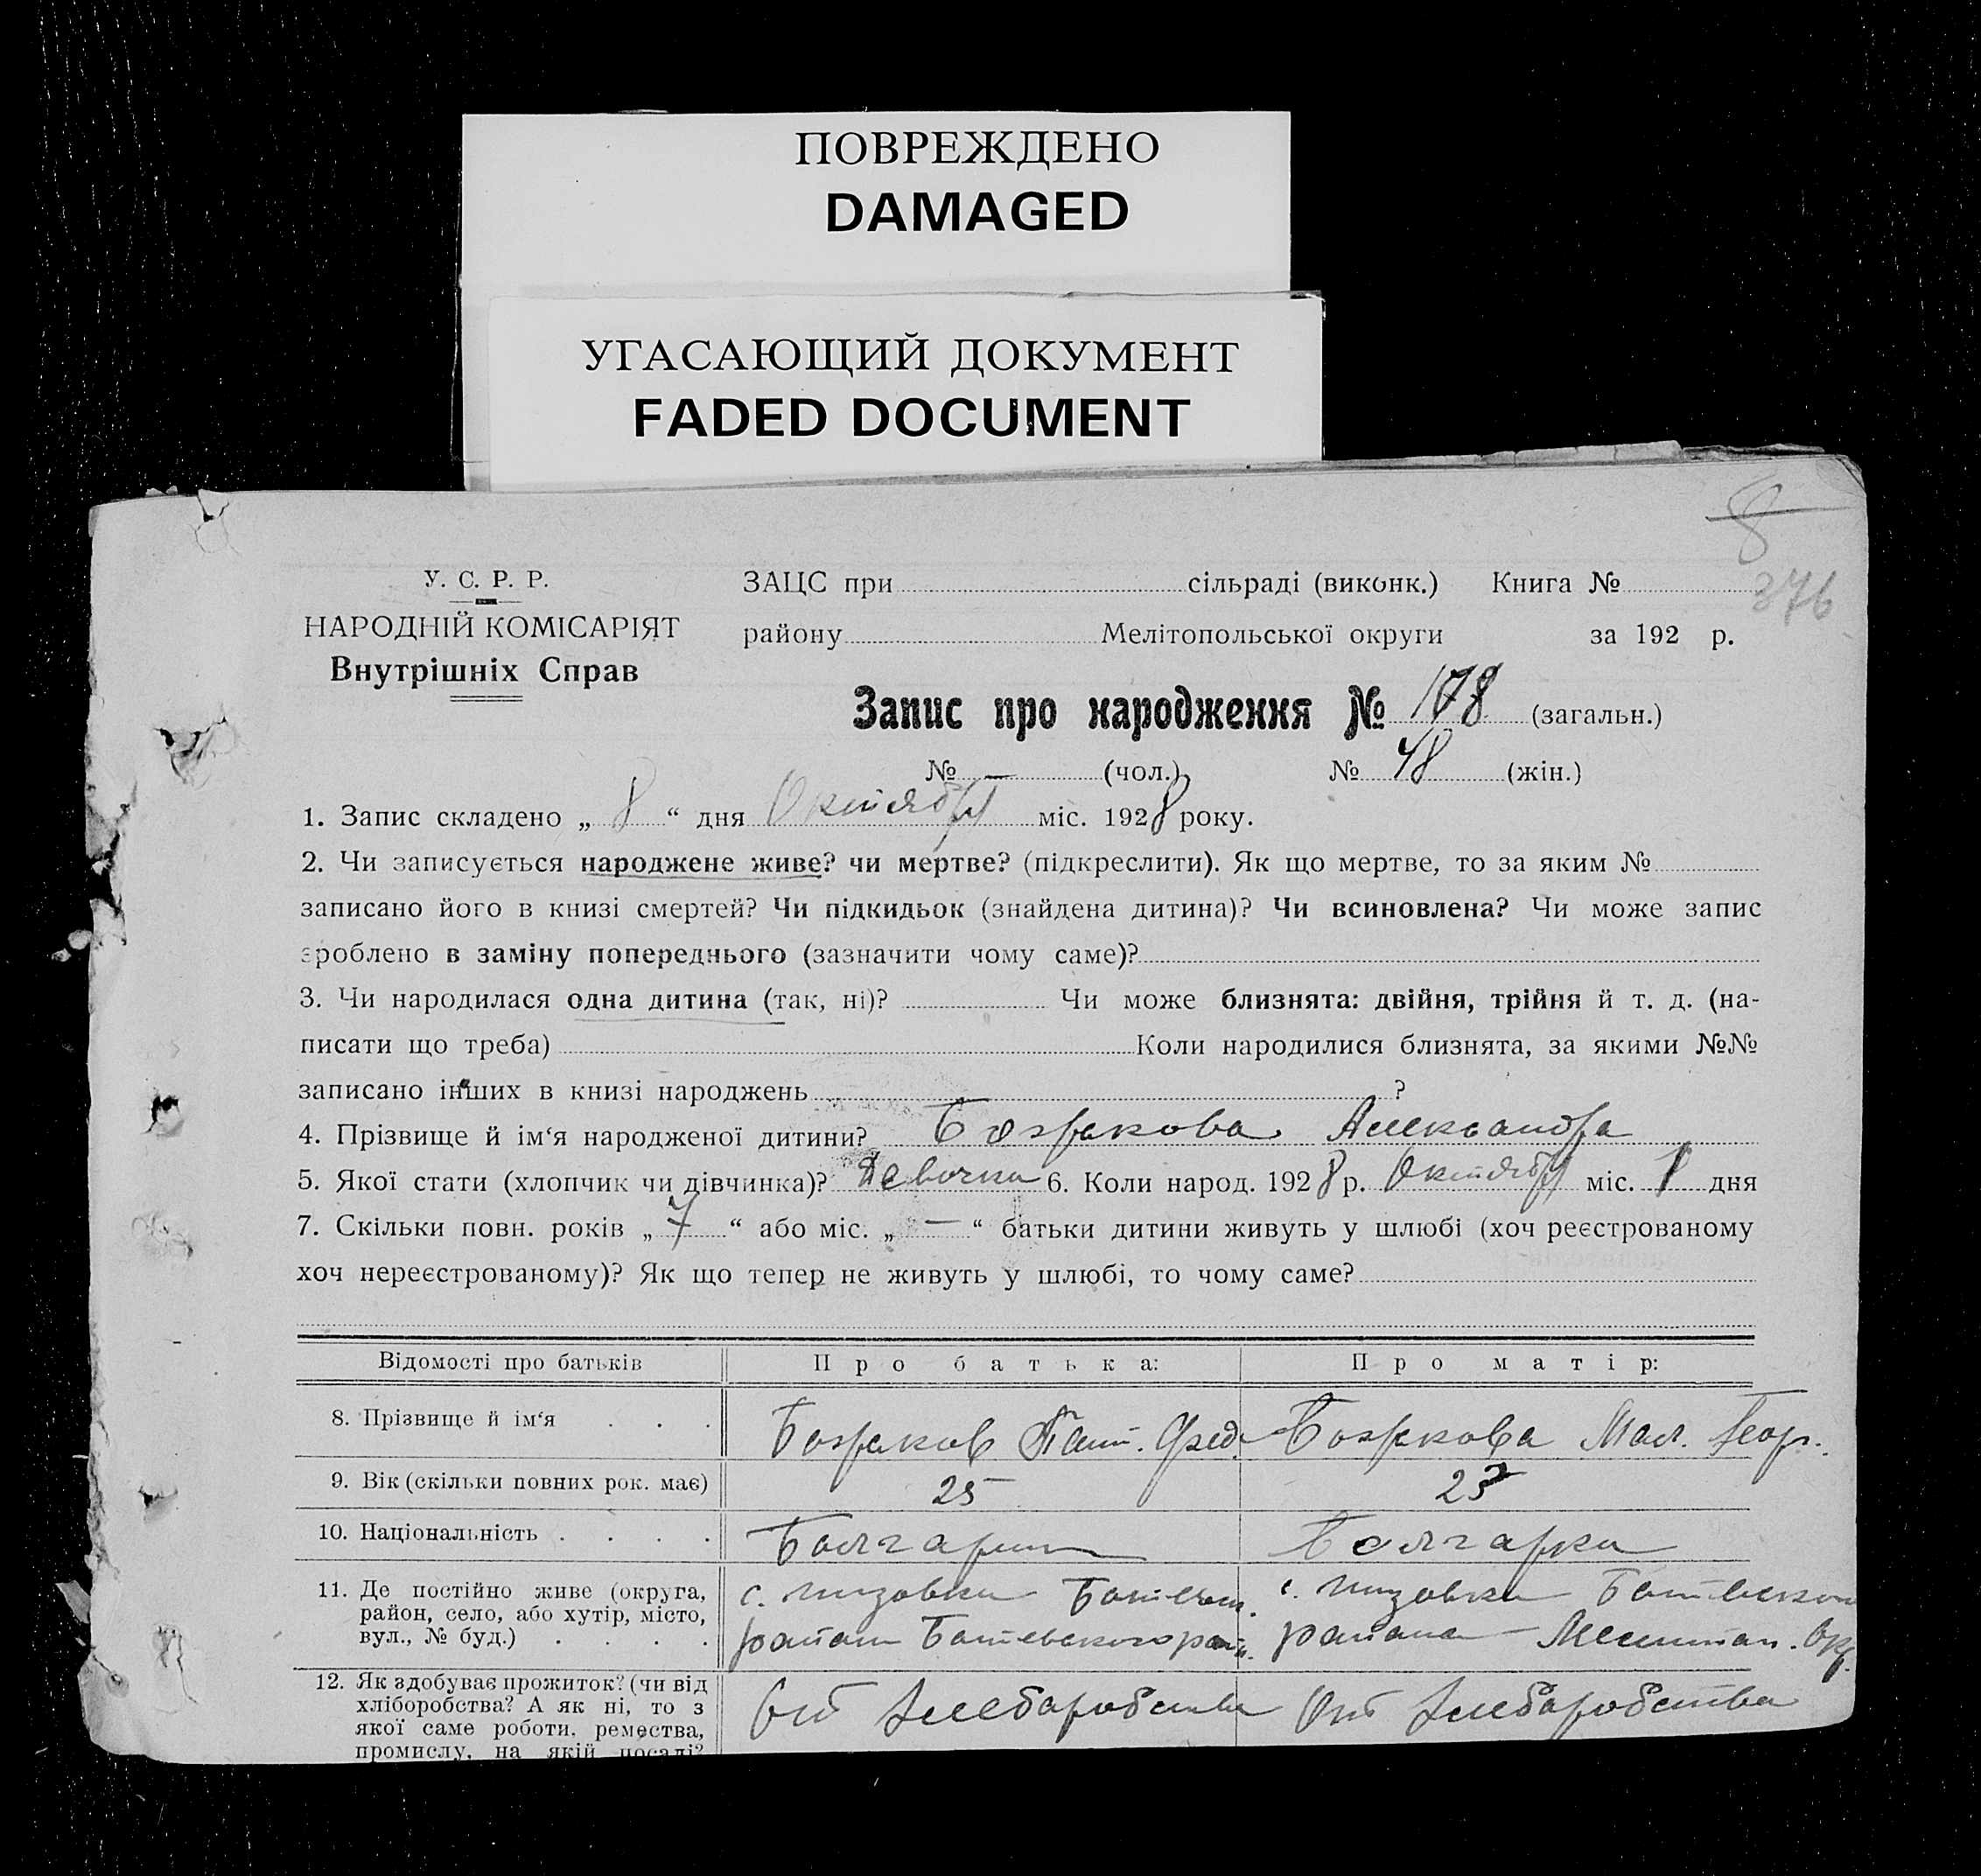 ПОВРЕЖДЕНО
DAMAGED
УГАСАЮЩИЙ ДОКУМЕНТ
FADED DOCUMENT
8
376
У. С. Р. Р.
НАРОДНІЙ КОМІСАРІЯТ
Внутрішніх Справ
ЗАЦС при сільраді (виконк.) Книга №
району Мелітопольської округи за 192 р.
Запис про народження № 178 (загальн.)
№ — (чол.) № 48 (жін.)
1. Запис складено „ 8 “ дня Октября міс. 1928 року.
2. Чи записується народжене живе? чи мертве? (підкреслити). Як що мертве, то за яким №
записано його в книзі смертей? Чи підкидьок (знайдена дитина)? Чи всиновлена? Чи може запис
зроблено в заміну попереднього (зазначити чому саме)?
3. Чи народилася одна дитина (так, ні)? Чи може близнята: двійня, трійня й т. д. (на-
писати що треба) Коли народилися близнята, за якими №№
записано інших в книзі народжень ?
4. Прізвище й ім‘я народженої дитини? Александра
5. Якої стати (хлопчик чи дівчинка)? Девочка 6. Коли народ. 1928 р. Октября міс. дня
7. Скільки повн. років „ 7 “ або міс. „ — “ батьки дитини живуть у шлюбі (хоч реєстрованому
хоч нереєстрованому)? Як що тепер не живуть у шлюбі, то чому саме?
Відомості про батьків Про батька: Про матір:
8. Прізвище й ім‘я
9. Вік (скільки повних рок. має) 25 23
10. Національність Болгарин Болгарка
11. Де постійно живе (округа,
район, село, або хутір, місто,
вул., № буд.)
с.
района
12. Як здобуває прожиток? (чи від
хліборобства? А як ні, то з
якої саме роботи, ремества,
промислу, на якій посаді?
От Хлеборобства От Хлеборобства